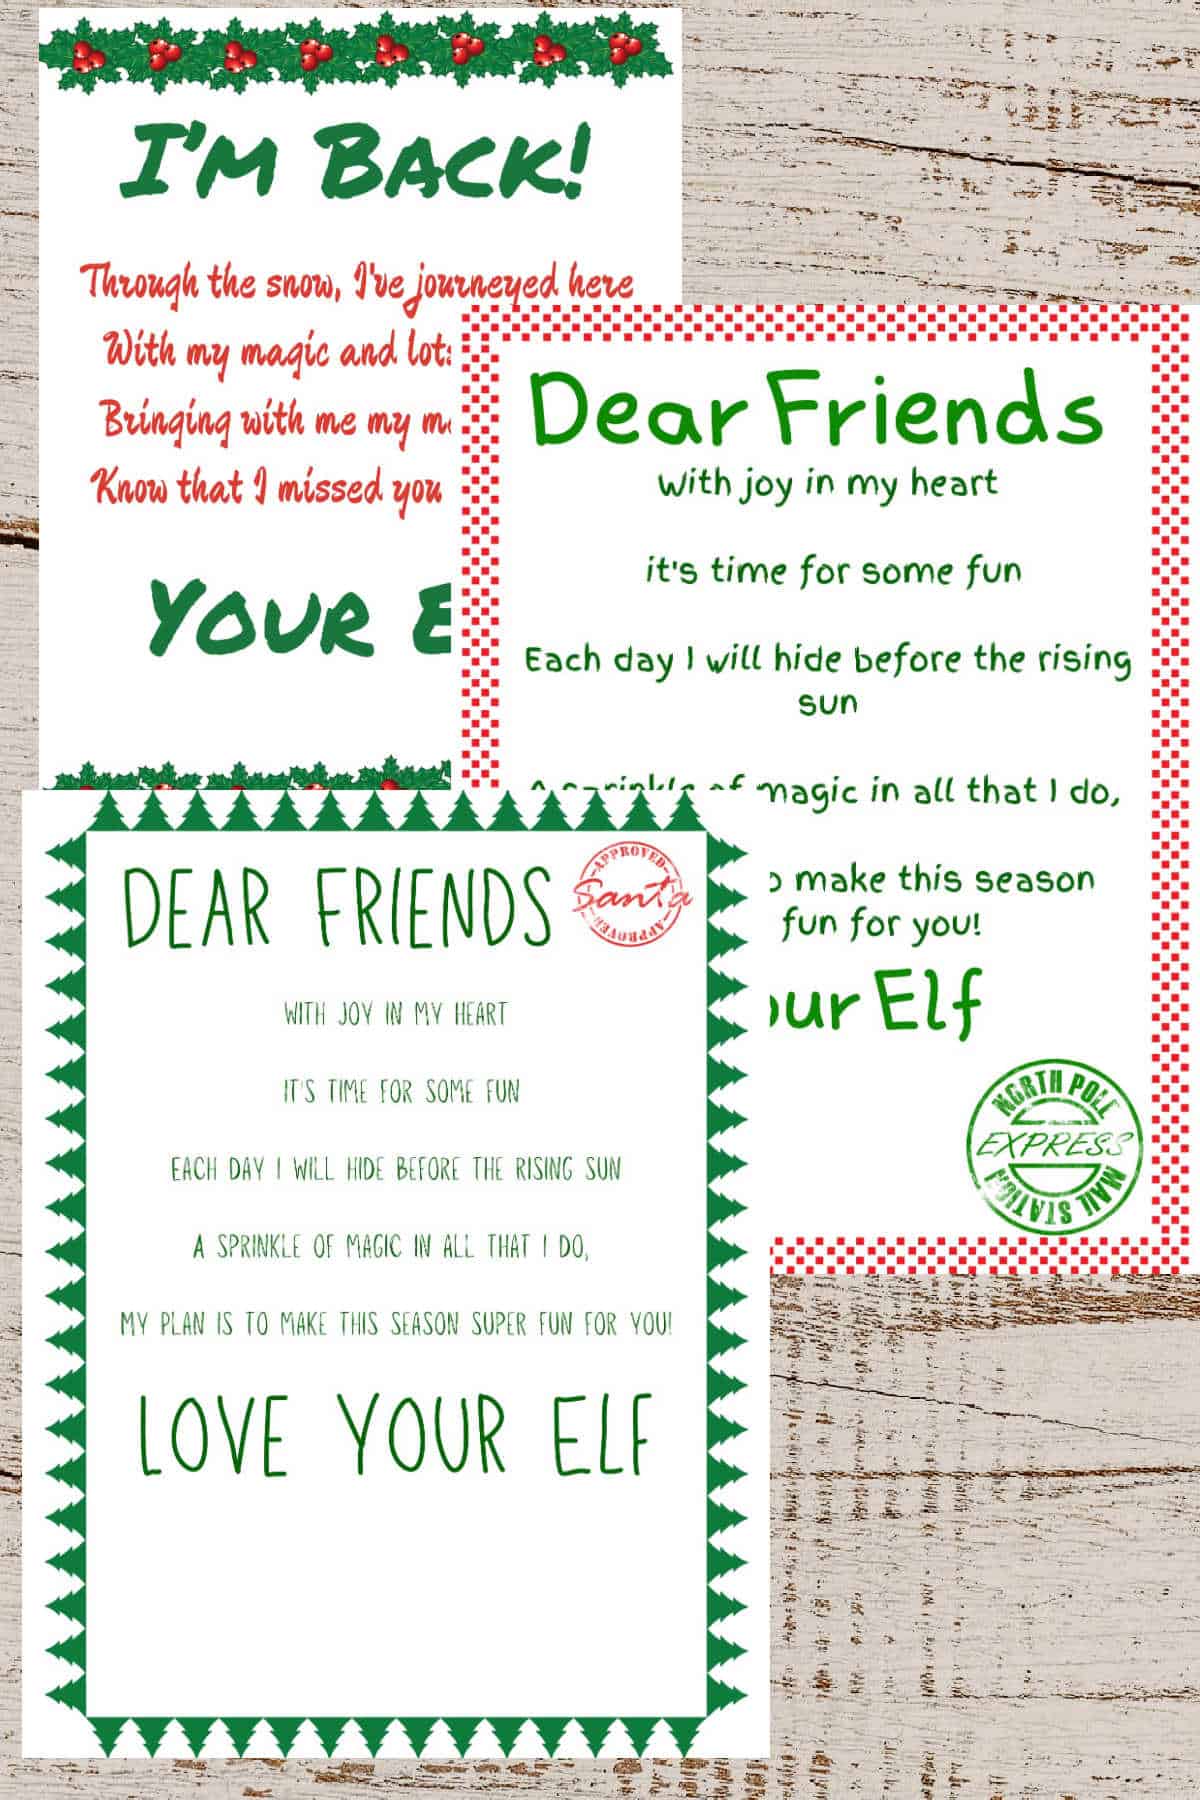 I'm Back!
Through the snow, I've journeyed here
With my magic and
Bringing with me my
Know that I missed you
Your
Dear Friends
With joy in my heart
it's time for some fun
Each day I will hide before the rising
sun
A sprinkle of magic in all that I do,
make this season
fun for you!
Elf
NORTH POLE
EXPRESS
MAIL STATION
DEAR FRIENDS
APPROVED
Santa
APPROVED
WITH JOY IN MY HEART
IT'S TIME FOR SOME FUN
EACH DAY I WILL HIDE BEFORE THE RISING SUN
A SPRINKLE OF MAGIC IN ALL THAT I DO,
MY PLAN IS TO MAKE THIS SEASON SUPER FUN FOR YOU!
LOVE YOUR ELF